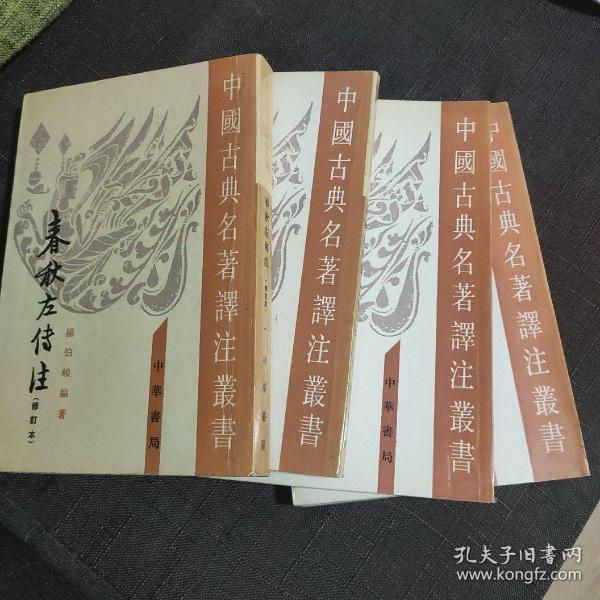 春秋左传注
(修訂本)
楊伯峻編著
中國古典名著譯注叢書
中華書局
中國古典名著譯注叢書
中國古典名著譯注叢書
中華書局
中國古典名著譯注叢書
孔夫子旧书网
www.kongfz.com